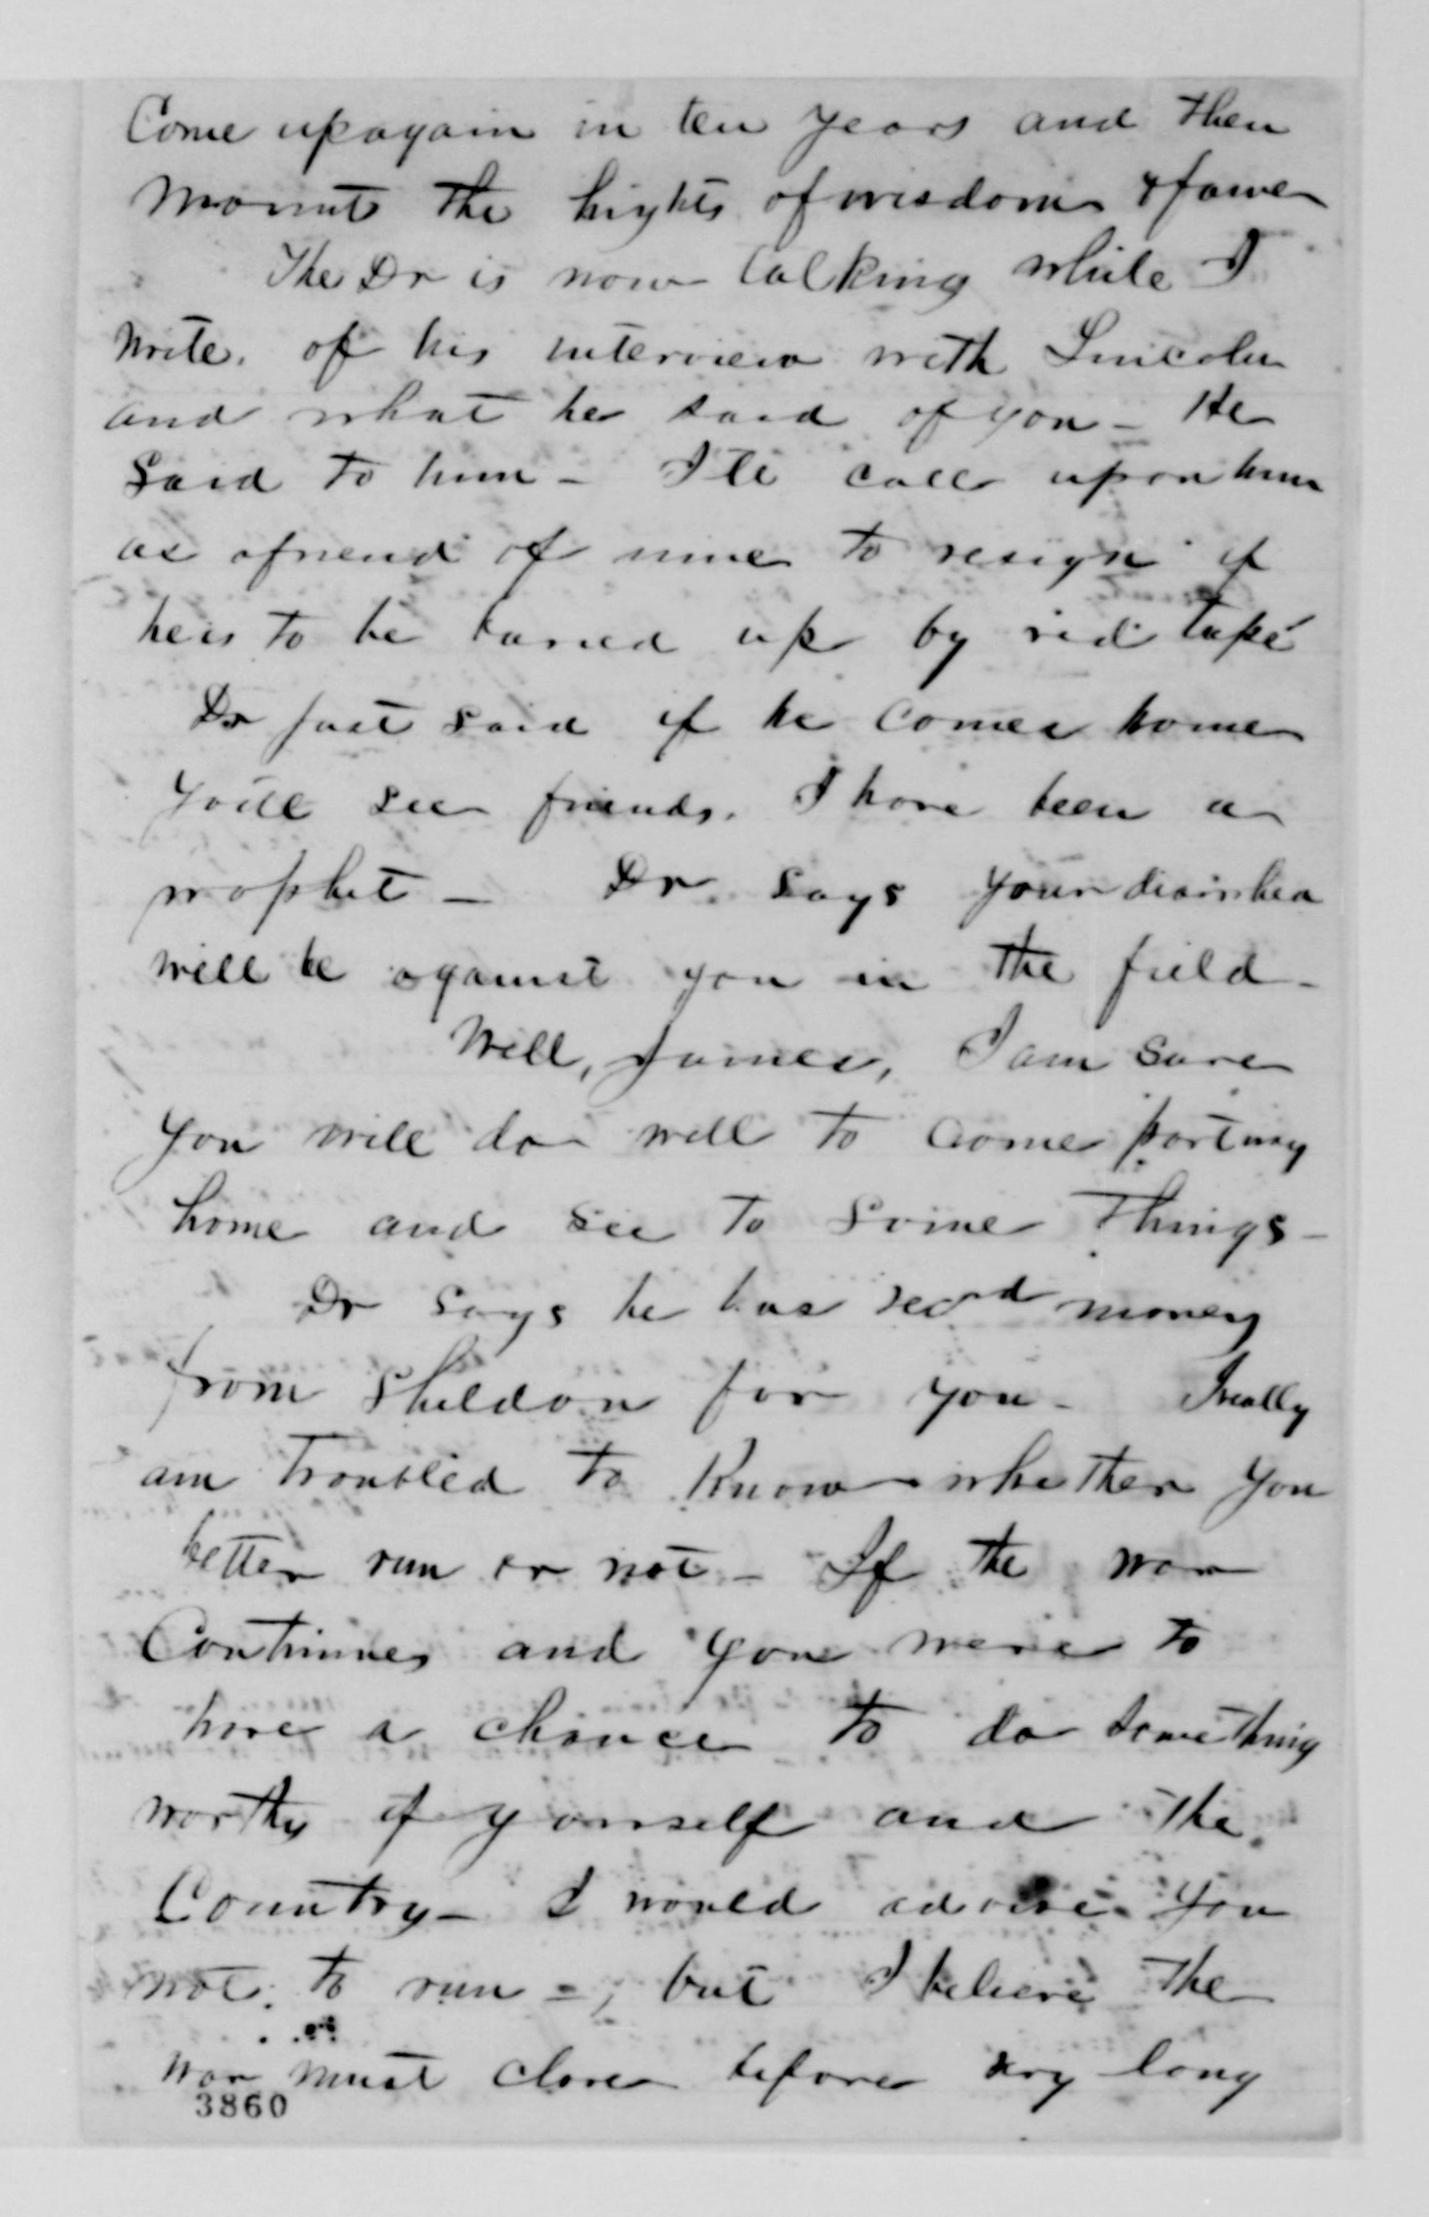 Come up again in ten years and then
mount the hights of wisdom & fame
The Dr is now talking while I
write. of his interview with Lincoln
and what he said of you - He
said to him - I'll call upon him
as a friend of mine to resign if
he is to be buried up by red tape
Dr just said if he comes home
you'll see friends. I have been a
prophet - Dr. says your diarrhea
will be against you in the field -
Well, James, I am sure
you will do well to come part way
home and see to some things -
Dr says he has recd money
from Sheldon for you - I really
am troubled to know whether you
better run or not - If the war
Continues and you were to
have a chance to do something
worthy of yourself and the
Country - I would advise you
not to run - ; but I believe the
war must close before very long
3860